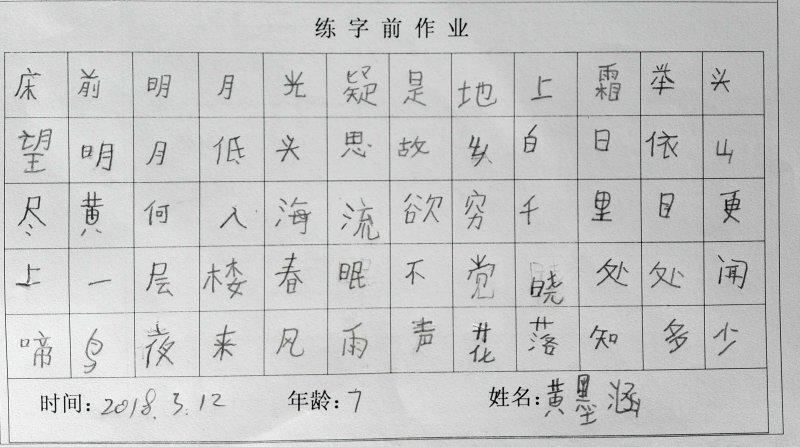 练字前作业
床前明月光疑是地上霜举头
望明月低头思故乡白日依山
尽黄何入海流欲穷千里目更
上一层楼春眠不觉晓处处闻
啼鸟夜来风雨声花落知多少
时间:2018.3.12 年龄:7 姓名:黄墨涵